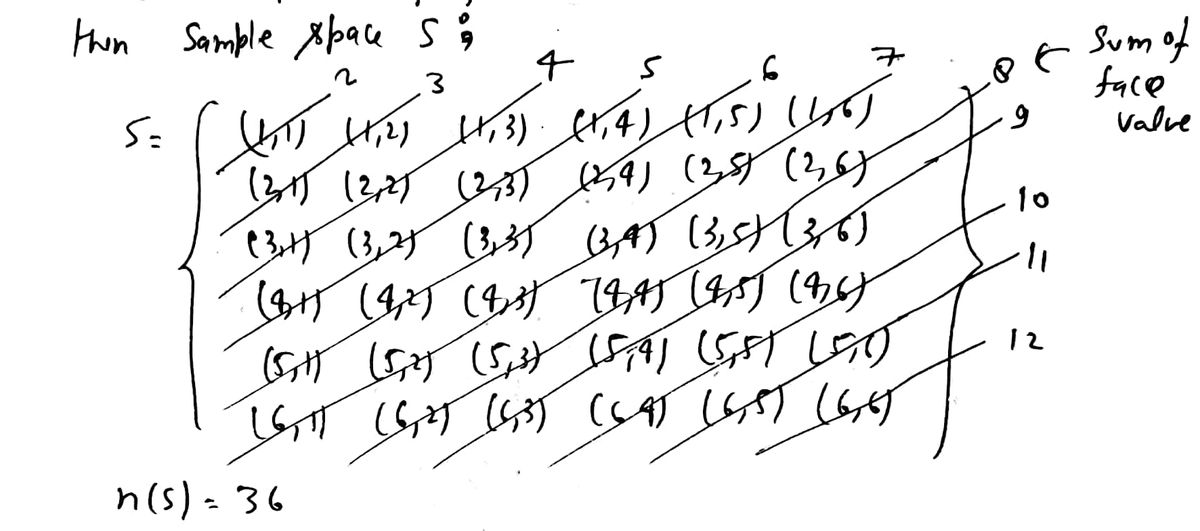 then Sample space S :
2 3 4 5 6 7 8 ← Sum of face value
S = { (1,1) (1,2) (1,3) (1,4) (1,5) (1,6) 9
(2,1) (2,2) (2,3) (2,4) (2,5) (2,6)
(3,1) (3,2) (3,3) (3,4) (3,5) (3,6) 10
(4,1) (4,2) (4,3) (4,4) (4,5) (4,6) 11
(5,1) (5,2) (5,3) (5,4) (5,5) (5,6) 12
(6,1) (6,2) (6,3) (6,4) (6,5) (6,6) }
n(S) = 36